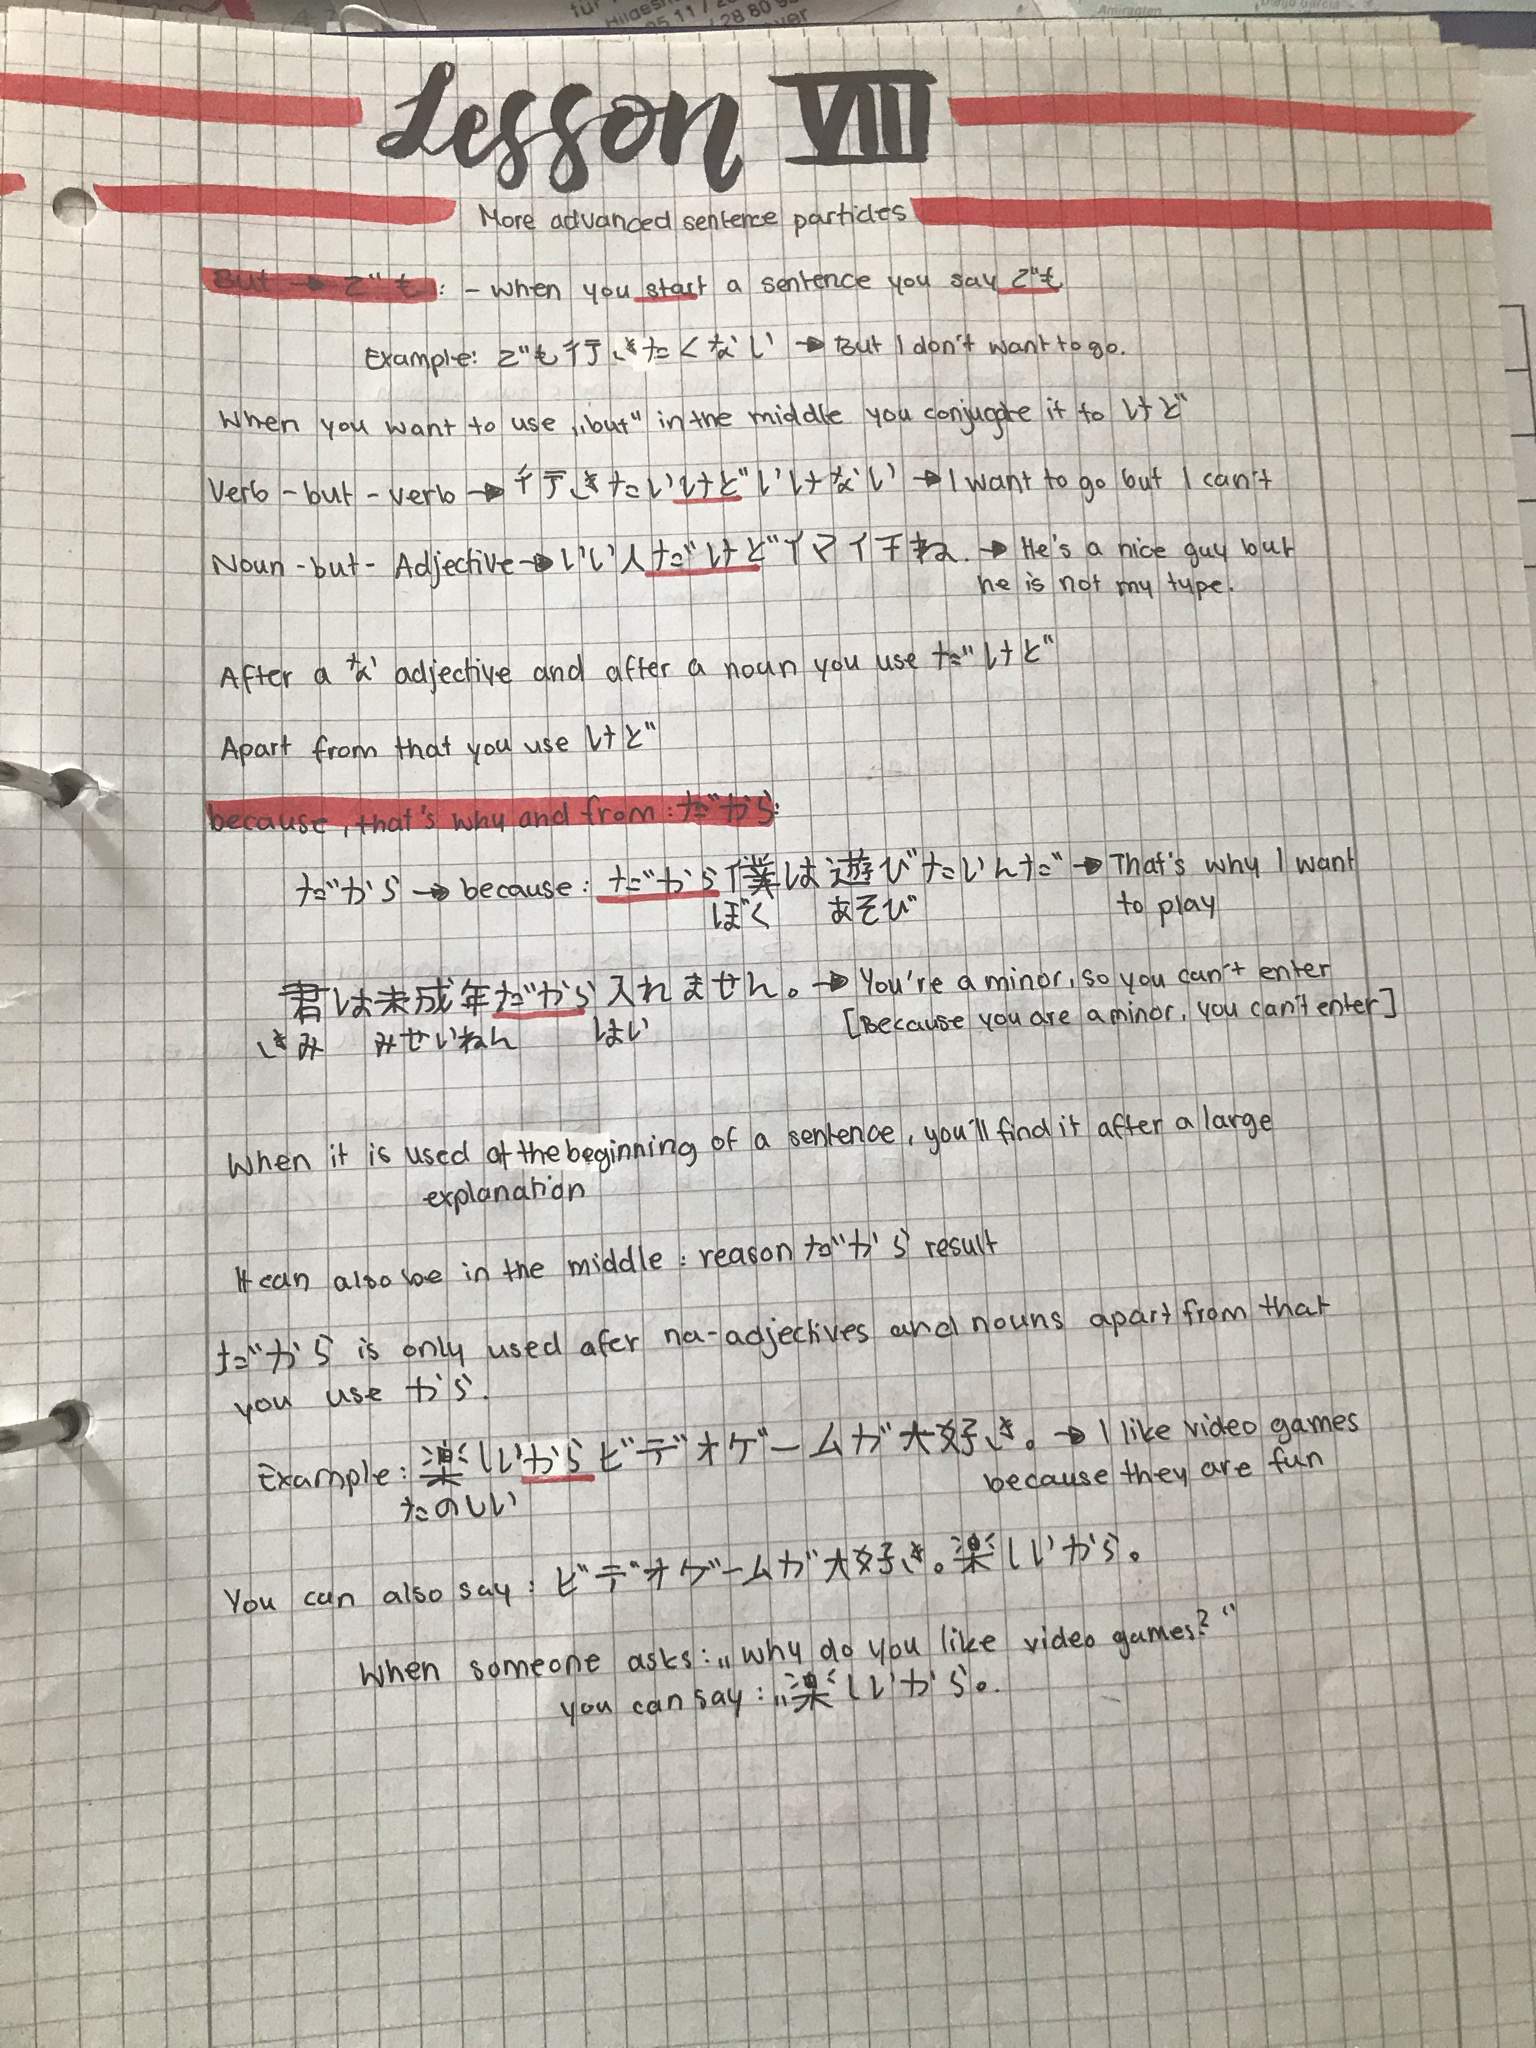 für
Hildesh
05 11 / 28
/ 28 80 9
ver
Amiragten
Diego Garcia
Lesson VIII
More advanced sentence particles
But → でも: - when you start a sentence you say でも
Example: でも行きたくない → But I don't want to go.
When you want to use „but" in the middle you conjugate it to けど
Verb - but - verb → 行きたいけどいけない → I want to go but I can't
Noun - but - Adjective → いい人だけどイマイチね. → He's a nice guy but
he is not my type.
After a な adjective and after a noun you use だけど
Apart from that you use けど
because, that's why and from: だから:
だから → because: だから僕は遊びたいんだ → That's why I want
ぼく あそび to play
君は未成年だから入れません。→ You're a minor, so you can't enter
きみ みせいねん はい [Because you are a minor, you can't enter]
When it is used at the beginning of a sentence, you'll find it after a large
explanation
It can also be in the middle: reason だから result
だから is only used afer na-adjectives and nouns apart from that
you use から.
Example: 楽しいからビデオゲームが大好き。→ I like video games
たのしい because they are fun
You can also say: ビデオゲームが大好き。楽しいから。
When someone asks: „why do you like video games?"
you can say: „楽しいから。